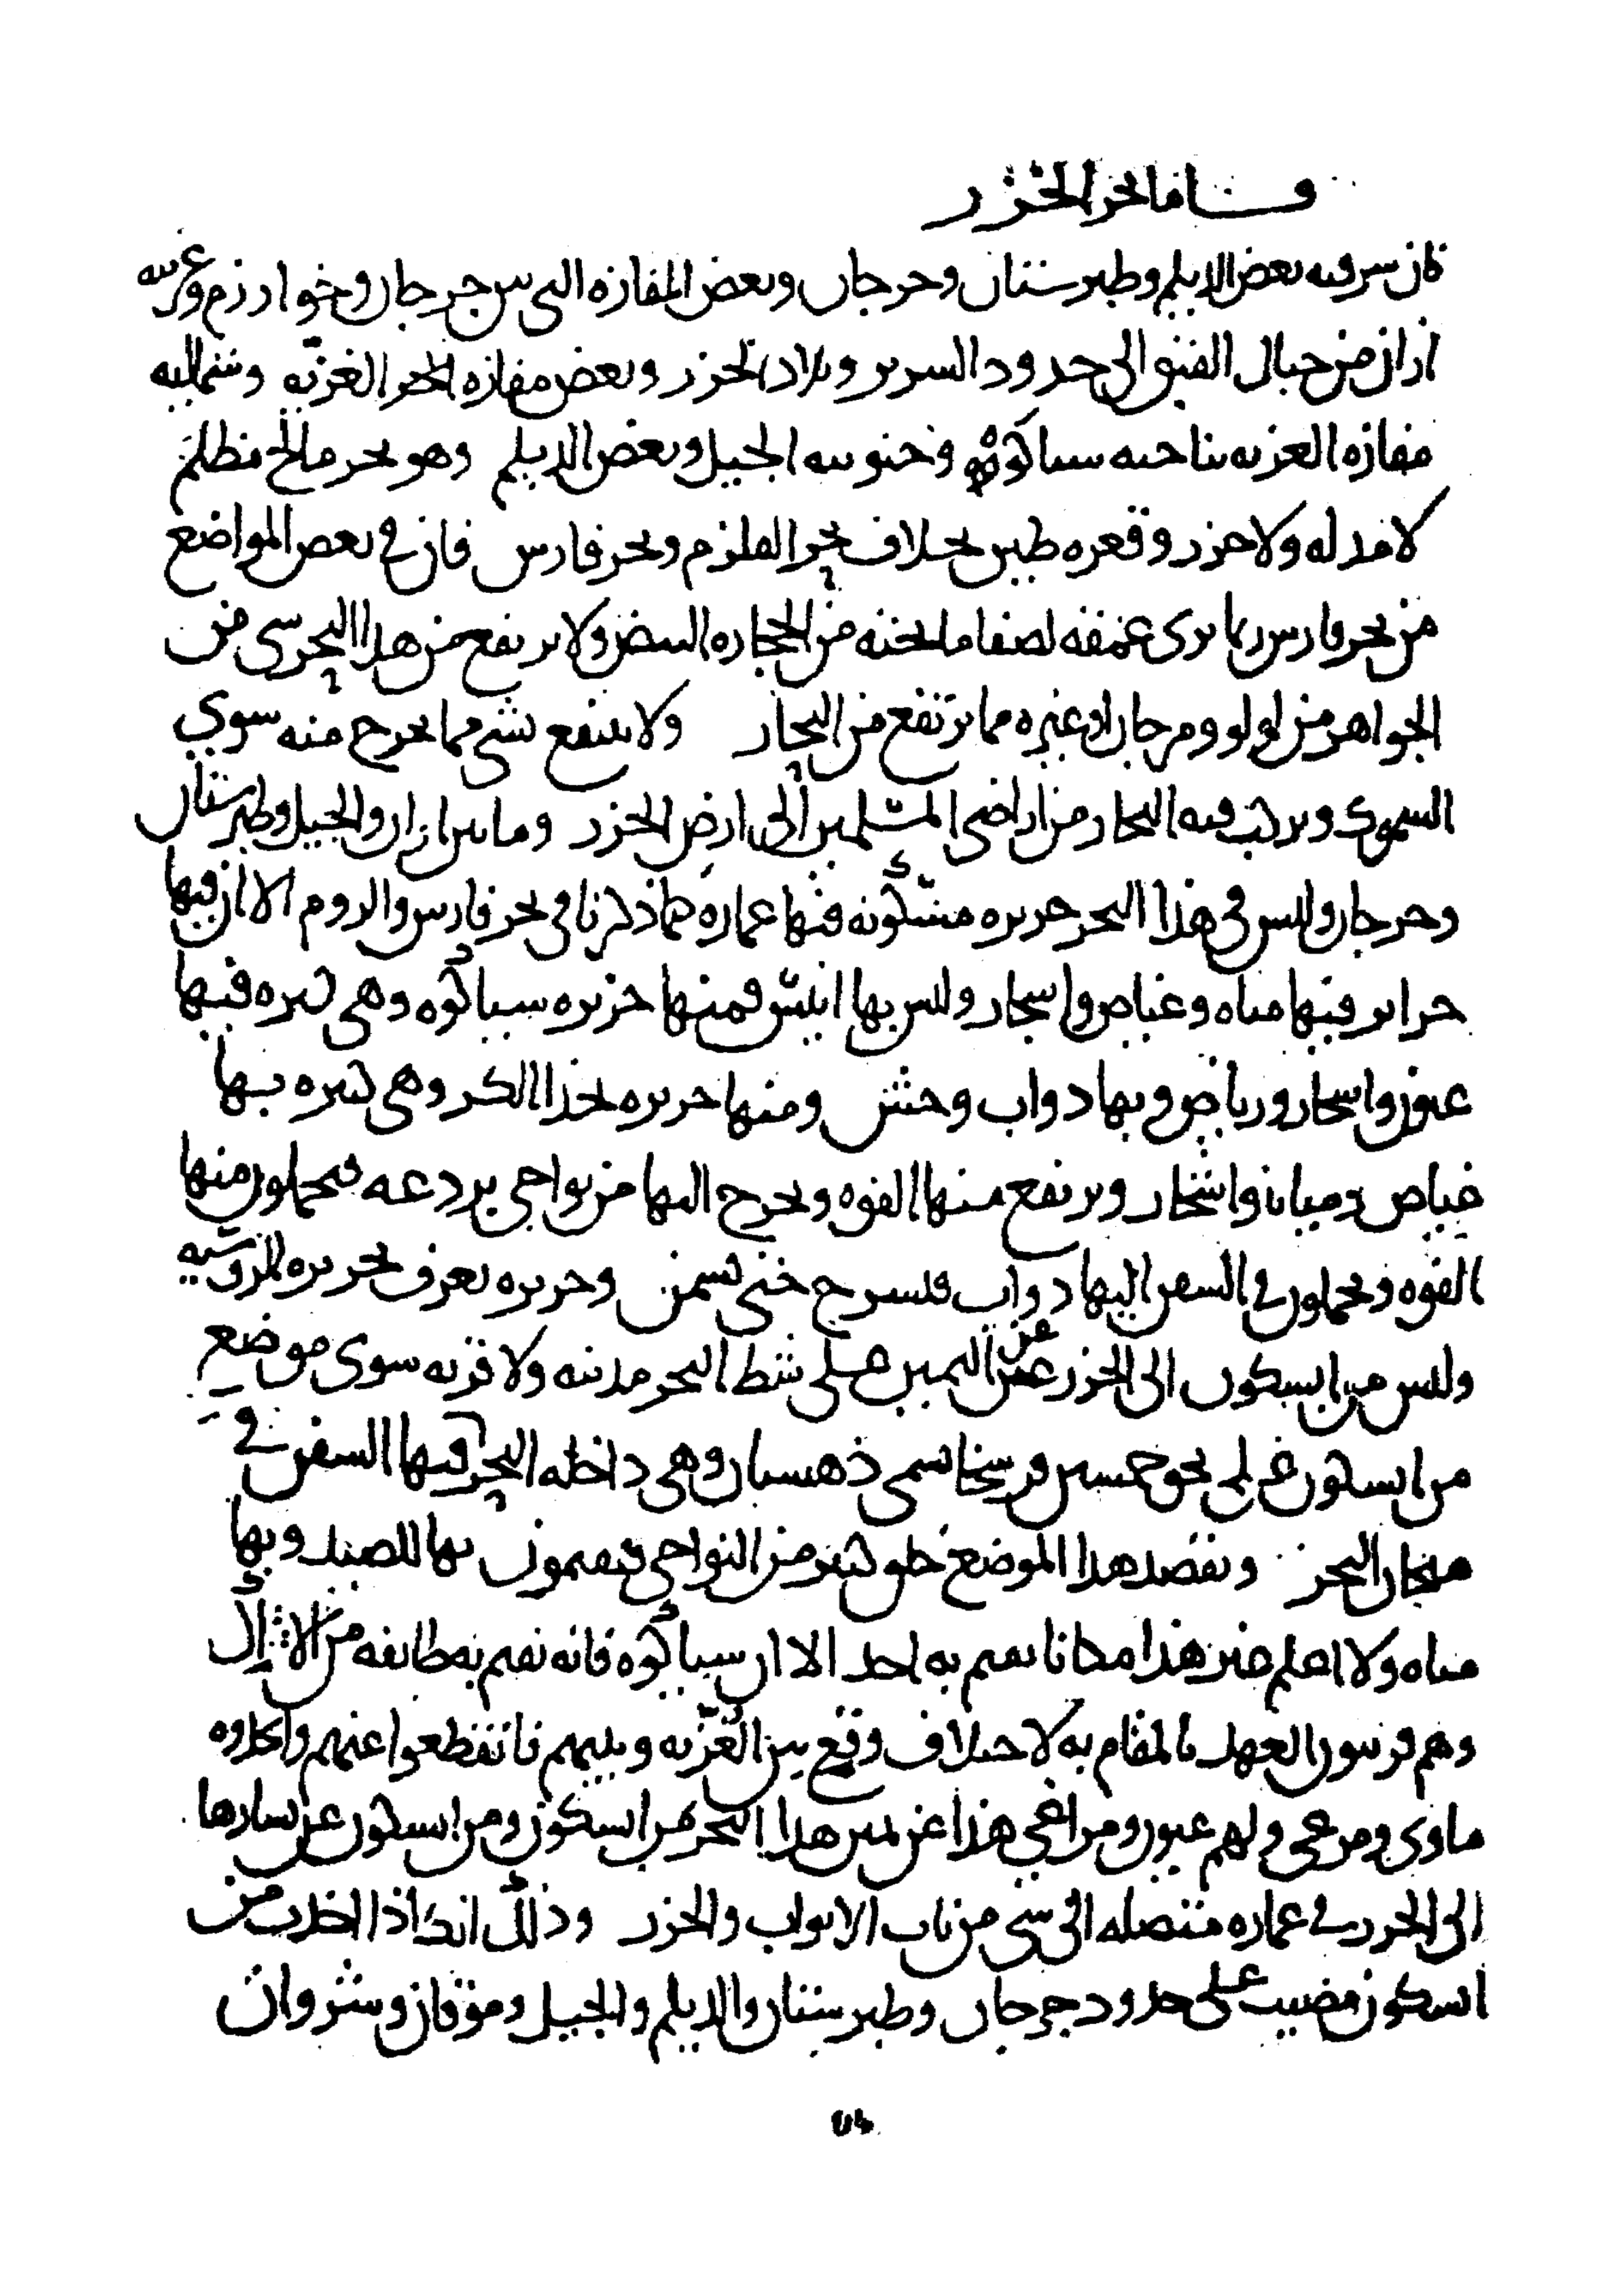 واما بحر الخزر
فان شرقيه بعض الديلم وطبرستان وجرجان وبعض المفازه التي بين جرجان وخوارزم وغربيه
اران من جبال القبق الى حدود السرير وبلاد الخزر وبعض مفازه الغزيه وشماليه
مفازه الغزيه بناحيه سياكوه وجنوبيه الجيل وبعض الديلم وهو بحر مالح مظلم
لا مد له ولا جزر وقعره طين بخلاف بحر القلزم وبحر فارس فان في بعض المواضع
من بحر فارس ربما يرى عمقه لصفا ما تحته من الحجاره البيض ولا يرتفع من هذا البحر شي من
الجواهر من لولو ومرجان او غيره مما يرتفع من البحار ولا ينتفع بشي مما يخرج منه سوي
السموك ويركب فيه التجار من اراضي المسلمين الى ارض الخزر وما بين اران والجيل وطبرستان
وجرجان وليس في هذا البحر جزيره مسكونه فيها عماره كما ذكرنا في بحر فارس والروم الا ان فيها
جزاير فيها مياه وغياض واشجار وليس بها انيس فمنها جزيره سياكوه وهي كبيره فيها
عيون واشجار ورياض وبها دواب وحش ومنها جزيره بحذا الكر وهي كبيره بها
غياض ومياه واشجار ويرتفع منها الفوه ويخرج اليها من نواحي بردعه فيحملون منها
الفوه ويحملون في السفن اليها دواب فتسرح حتى تسمن وجزيره تعرف بجزيره الروسيه
وليس من ابسكون الى الخزر عن اليمين على شط البحر مدينه ولا قريه سوى موضع
من ابسكون على نحو خمسين فرسخا يسمى دهستان وهي داخله البحر فيها السفن في
هيجان البحر ويقصد هذا الموضع خلق كثير من النواحي فيقيمون بها للصيد وبها
مياه ولا اعلم غير هذا مكانا يقيم به احد الا ان سياكوه فانه يقيم به طايفه من الاتراك
وهم قريبوا العهد بالمقام به لاختلاف وقع بين الغزيه وبينهم فانقطعوا عنهم واتخذوه
ماوى ومرعى ولهم عيون ومراعي هذا عن يمين هذا البحر من ابسكون ومن ابسكون عن يسارها
الى الخزر في عماره متصله الى شي من باب الابواب والخزر وذلك انك اذا اخذت من
ابسكون مضيت على حدود جرجان وطبرستان والديلم والجيل وموقان وشروان